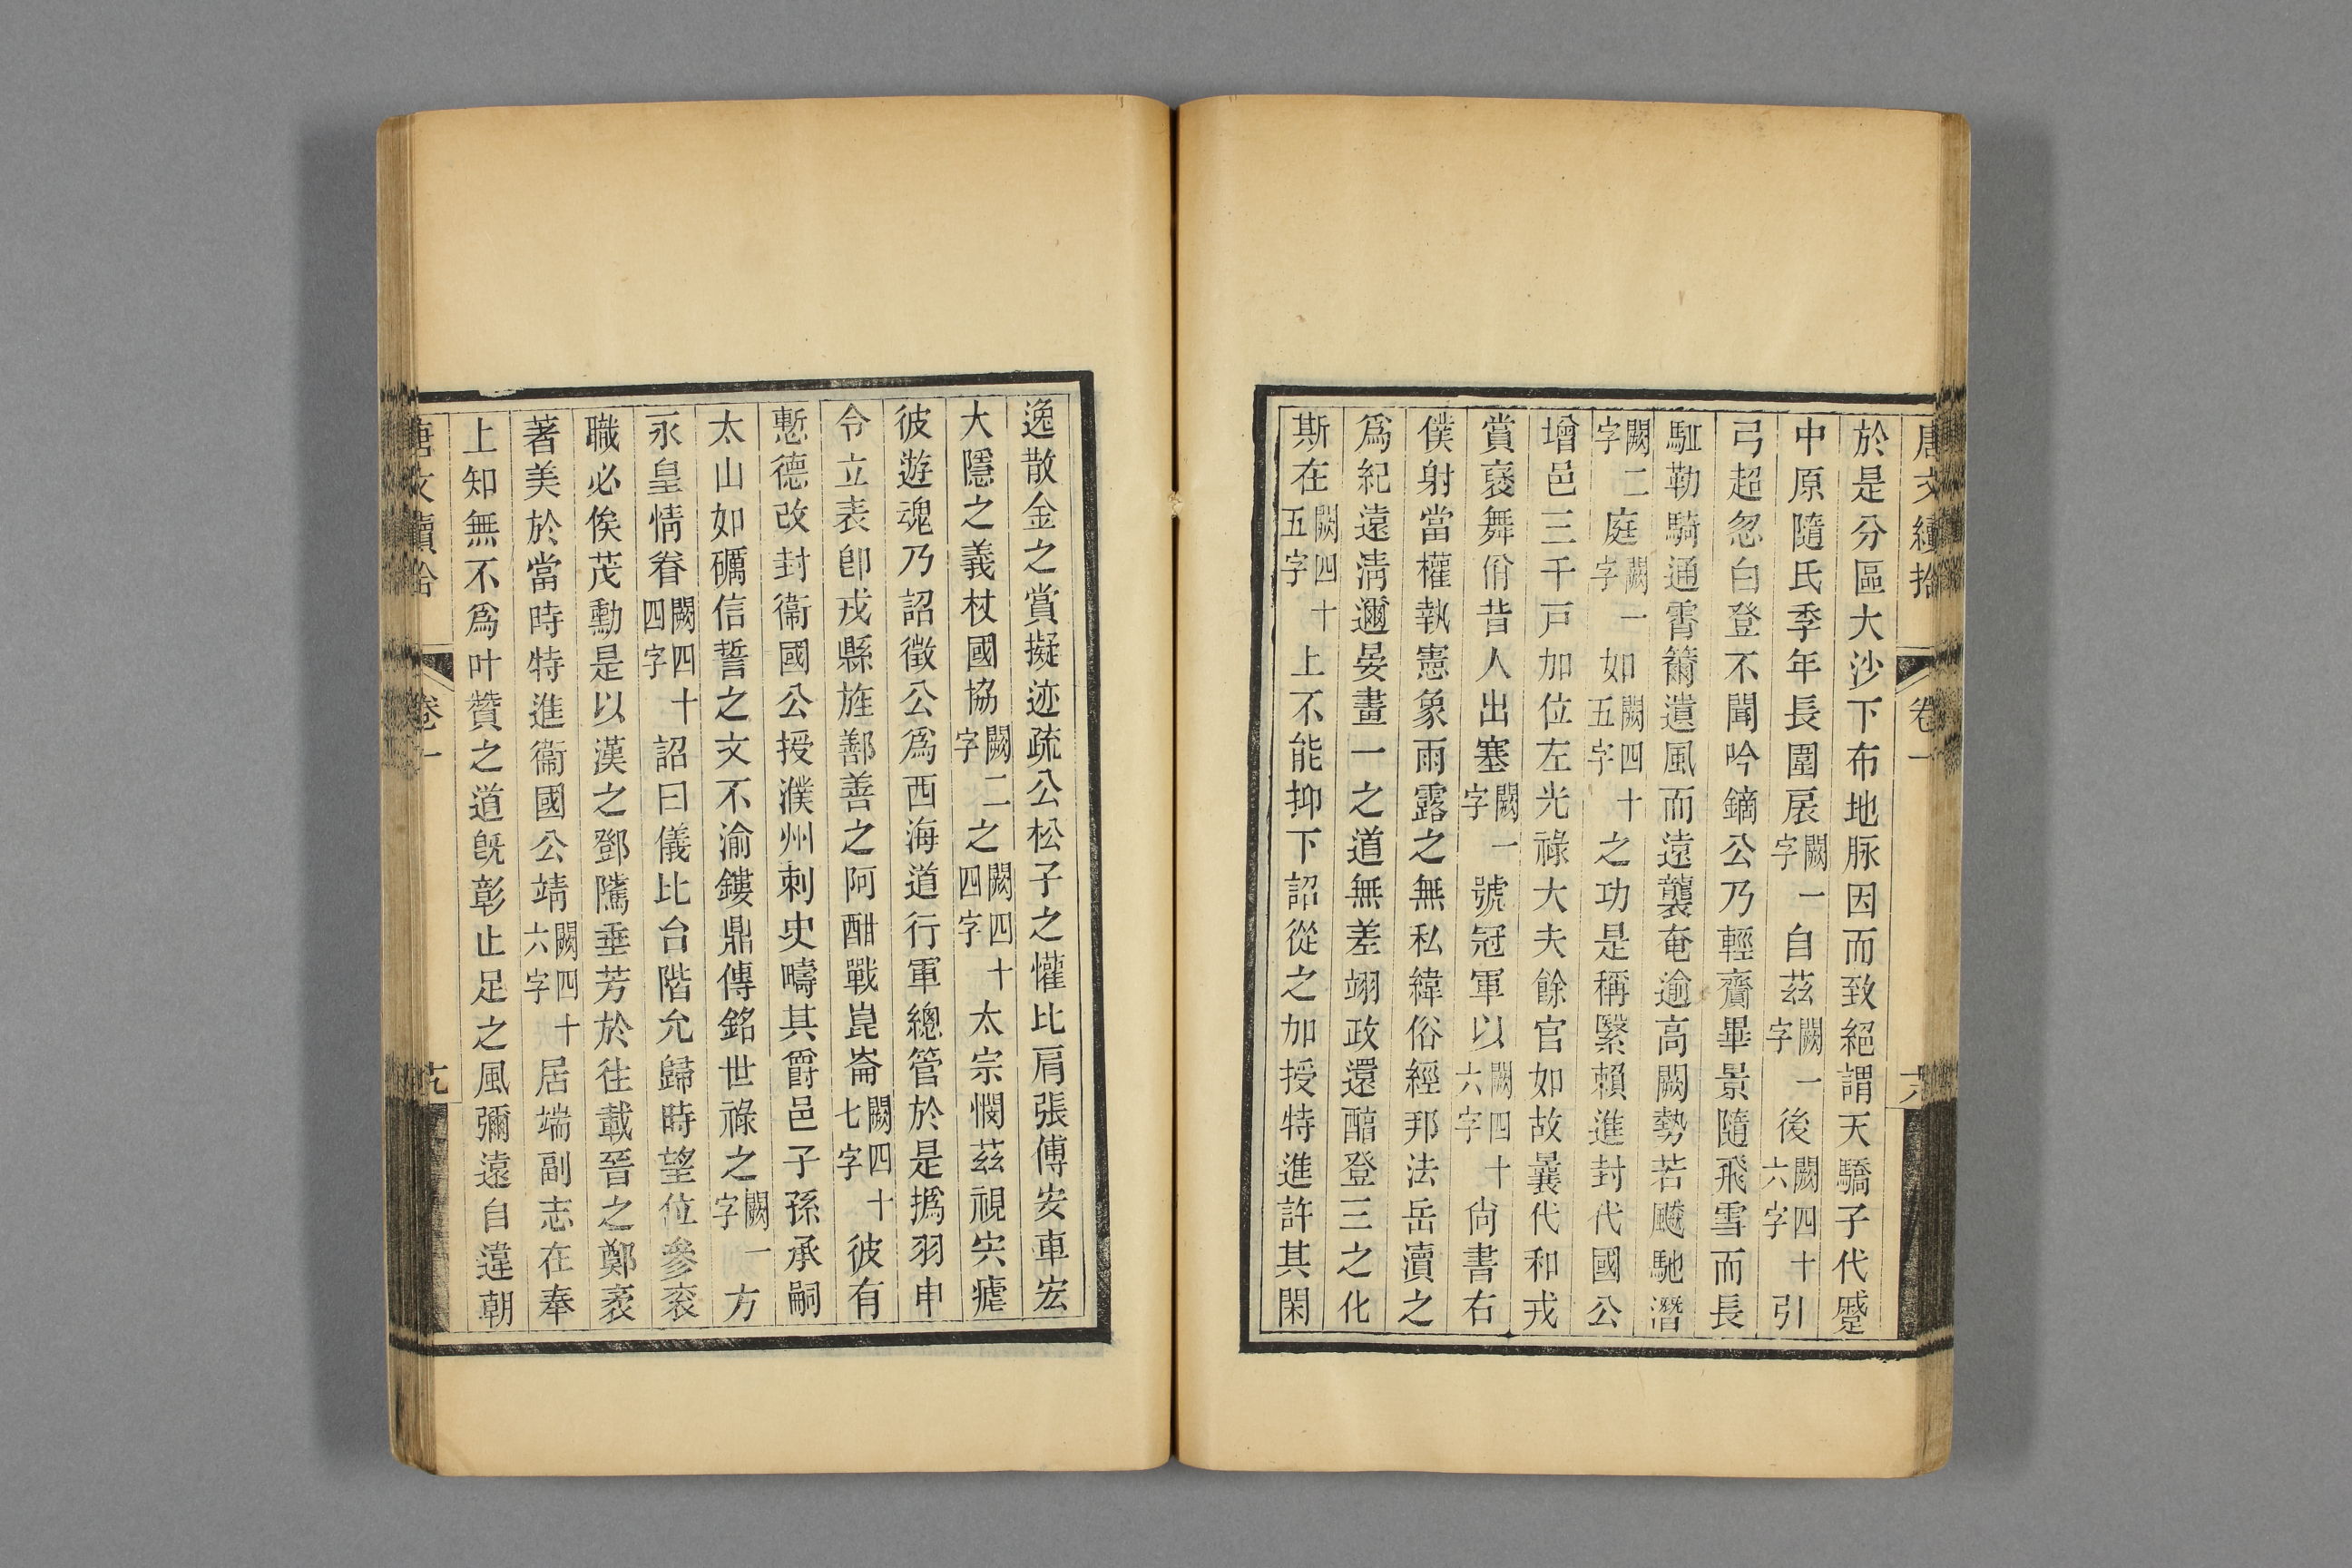 唐文續拾 卷一 十八
於是分區大沙下布地脉因而致絕謂天驕子代蹙
中原隨氏季年長圍扆闕一字自茲闕一字後闕四十六字引
弓超忽白登不聞吟鏑公乃輕齎畢景隨飛雪而長
駈勒騎通霄籋遺風而遠襲奄逾高闕勢若飈馳潛
闕二字庭闕一字如闕四十五字之功是稱緊賴進封代國公
增邑三千戸加位左光祿大夫餘官如故曩代和戎
賞裦舞佾昔人出塞闕一字號冠軍以闕四十六字尙書右
僕射當權執憲象雨露之無私緯俗經邦法岳瀆之
爲紀遠淸邇晏畫一之道無差翊政還醕登三之化
斯在闕四十五字上不能抑下詔從之加授特進許其閑
逸散金之賞擬迹疏公松子之懽比肩張傅安車宏
大隱之義杖國協闕二字之闕四十四字太宗憫茲視宍瘧
彼遊魂乃詔徵公爲西海道行軍總管於是撝羽申
令立表卽戎縣旌鄯善之阿酣戰崑崙闕四十七字彼有
慙德改封衞國公授濮州刺史疇其爵邑子孫承嗣
太山如礪信誓之文不渝鏤鼎傳銘世祿之闕一字方
永皇情眷闕四十四字詔曰儀比台階允歸時望位參衮
職必俟茂勳是以漢之鄧隲垂芳於往載晉之鄭袤
著美於當時特進衞國公靖闕四十六字居端副志在奉
上知無不爲叶贊之道旣彰止足之風彌遠自違朝
唐文續拾 卷一 十九